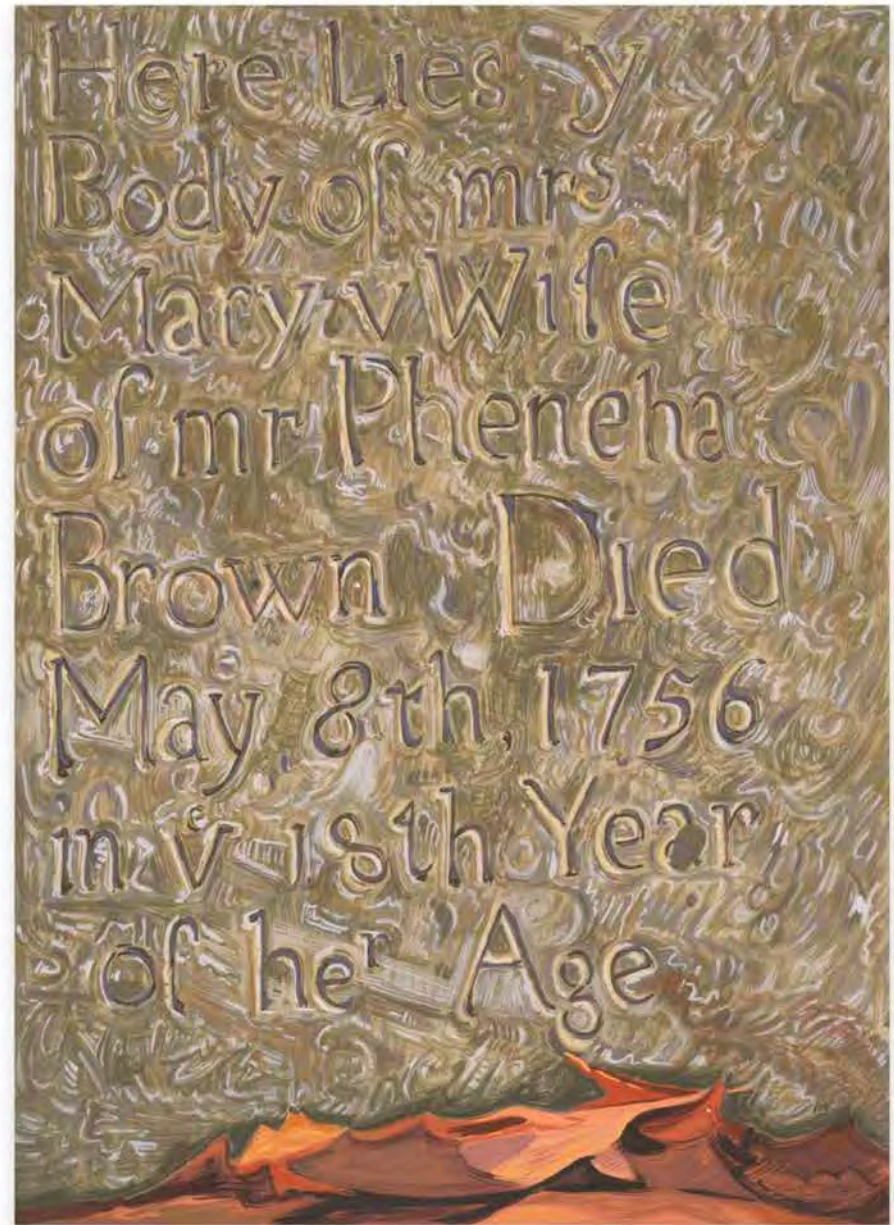 Here Lies y
Body of mrs
Mary v Wife
of mr Pheneha
Brown Died
May 8th, 1756
in ve 18th Year
of her Age